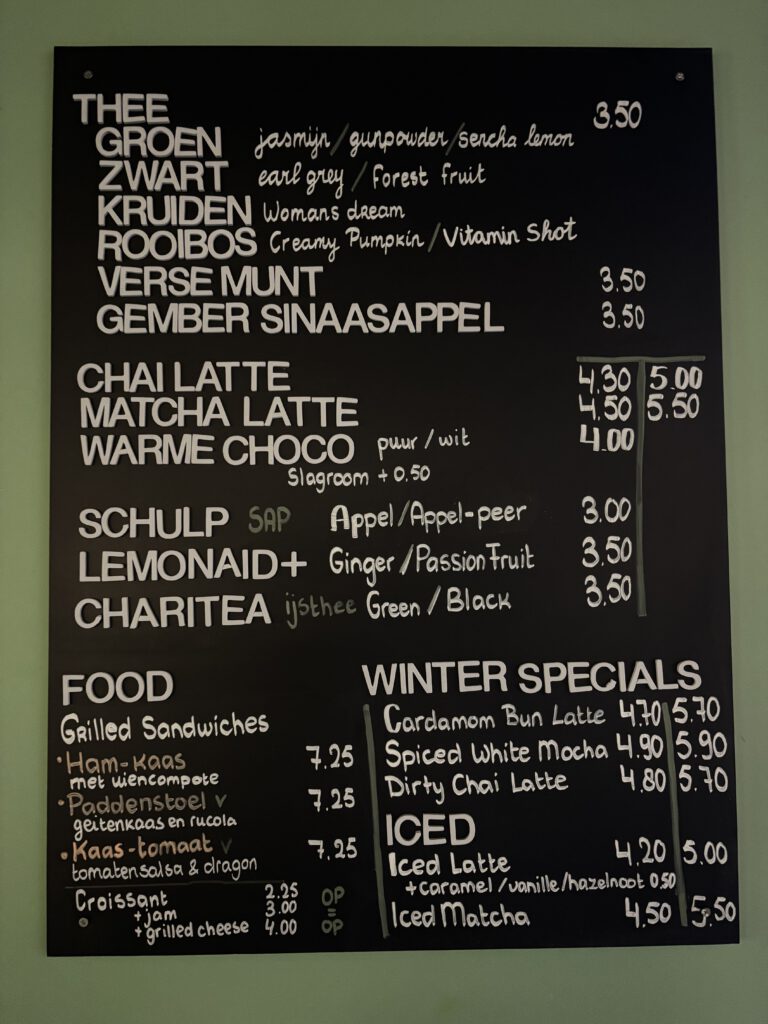 THEE 3.50
GROEN jasmijn / gunpowder / sencha lemon
ZWART earl grey / Forest fruit
KRUIDEN Womans dream
ROOIBOS Creamy Pumpkin / Vitamin Shot
VERSE MUNT 3.50
GEMBER SINAASAPPEL 3.50
CHAI LATTE 4.30 5.00
MATCHA LATTE 4.50 5.50
WARME CHOCO puur / wit 4.00
Slagroom + 0.50
SCHULP SAP Appel / Appel-peer 3.00
LEMONAID+ Ginger / Passion Fruit 3.50
CHARITEA ijsthee Green / Black 3.50
FOOD
Grilled Sandwiches
• Ham-kaas 7.25
met uiencompote
• Paddenstoel v 7.25
geitenkaas en rucola
• Kaas-tomaat v 7.25
tomatensalsa & dragon
Croissant 2.25
+ jam 3.00
+ grilled cheese 4.00
OP
=
OP
WINTER SPECIALS
Cardamom Bun Latte 4.70 5.70
Spiced White Mocha 4.90 5.90
Dirty Chai Latte 4.80 5.70
ICED
Iced Latte 4.20 5.00
+ caramel / vanille / hazelnoot 0.50
Iced Matcha 4.50 5.50